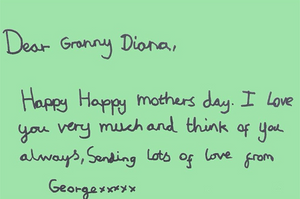 Dear Granny Diana,
Happy Happy mothers day. I love
you very much and think of you
always, Sending lots of love from
Georgexxxxx